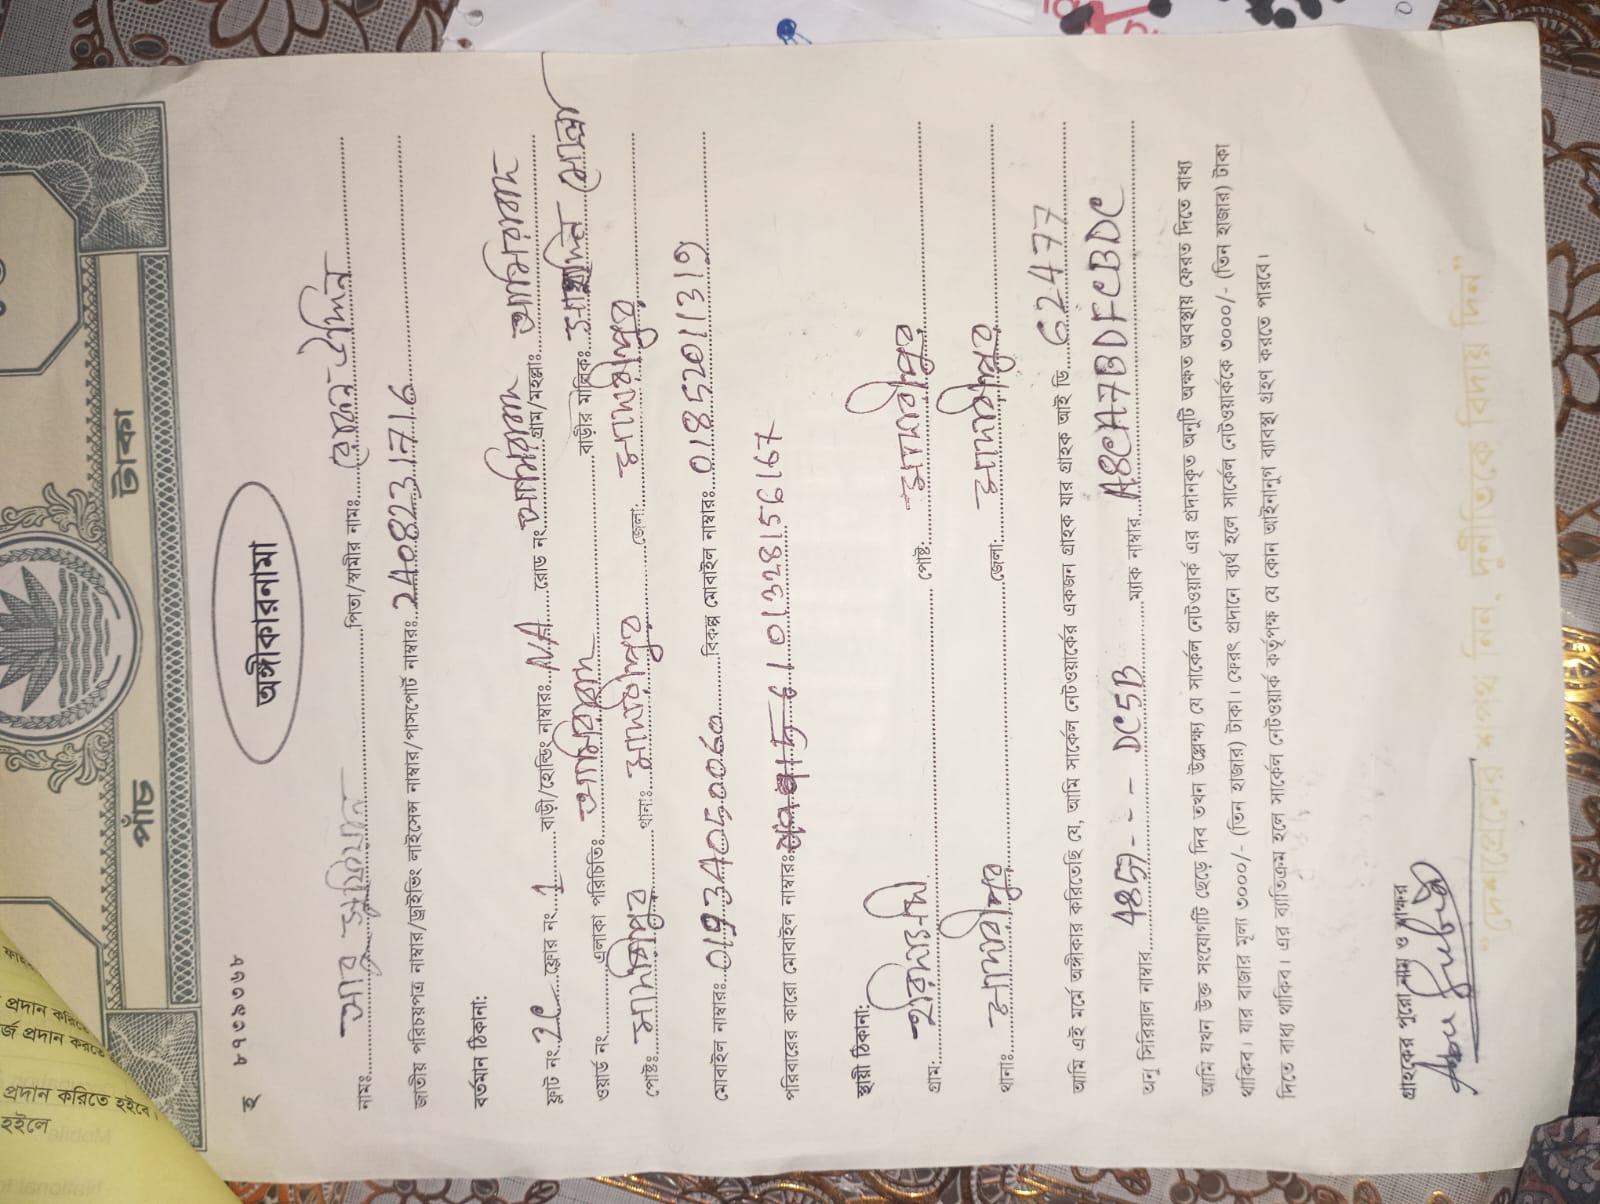 পাঁচ টাকা
হ ৮৭৩৯৩৬৭
অঙ্গীকারনামা
নামঃ আবু সুফিয়ান পিতা/স্বামীর নামঃ উদ্দিন
জাতীয় পরিচয়পত্র নাম্বার/ড্রাইভিং লাইসেন্স নাম্বার/পাসপোর্ট নাম্বারঃ
বর্তমান ঠিকানা:
ফ্লাট নং ফ্লোর নং 1 বাড়ী/হোল্ডিং নাম্বারঃ NA রোড নং আমিরাবাদ গ্রাম/মহল্লাঃ আমিরাবাদ
ওয়ার্ড নং এলাকা পরিচিতিঃ আমিরাবাদ বাড়ীর মালিকঃ মোল্লা
পোষ্টঃ মাদারীপুর থানাঃ মাদারীপুর জেলা: মাদারীপুর
মোবাইল নাম্বারঃ বিকল্প মোবাইল নাম্বারঃ
পরিবারের কারো মোবাইল নাম্বারঃ 01328156167
স্থায়ী ঠিকানা:
গ্রাম: পোষ্ট: মাদারীপুর
থানাঃ মাদারীপুর জেলা: মাদারীপুর
আমি এই মর্মে অঙ্গীকার করিতেছি যে, আমি সার্কেল নেটওয়ার্কের একজন গ্রাহক যার গ্রাহক আই ডি 62477
অনু সিরিয়াল নাম্বার 4857--- DC5B ম্যাক নাম্বার
আমি যখন উক্ত সংযোগটি ছেড়ে দিব তখন উল্লেক্ষ্য যে সার্কেল নেটওয়ার্ক এর প্রদানকৃত অনুটি অক্ষত অবস্থায় ফেরত দিতে বাধ্য
থাকিব। যার বাজার মূল্য ৩০০০/- (তিন হাজার) টাকা। ফেরৎ প্রদানে ব্যর্থ হলে সার্কেল নেটওয়ার্ককে ৩০০০/- (তিন হাজার) টাকা
দিতে বাধ্য থাকিব। এর ব্যাতিক্রম হলে সার্কেল নেটওয়ার্ক কর্তৃপক্ষ যে কোন আইনানুগ ব্যাবস্থা গ্রহণ করতে পারবে।
গ্রাহকের পুরো নাম ও স্বাক্ষর
Abu
"দেশপ্রেমের শপথ নিন, দুর্নীতিকে বিদায় দিন"
প্রদান করিতে
র্জ প্রদান করতে
প্রদান করিতে হইবে।
হইলে